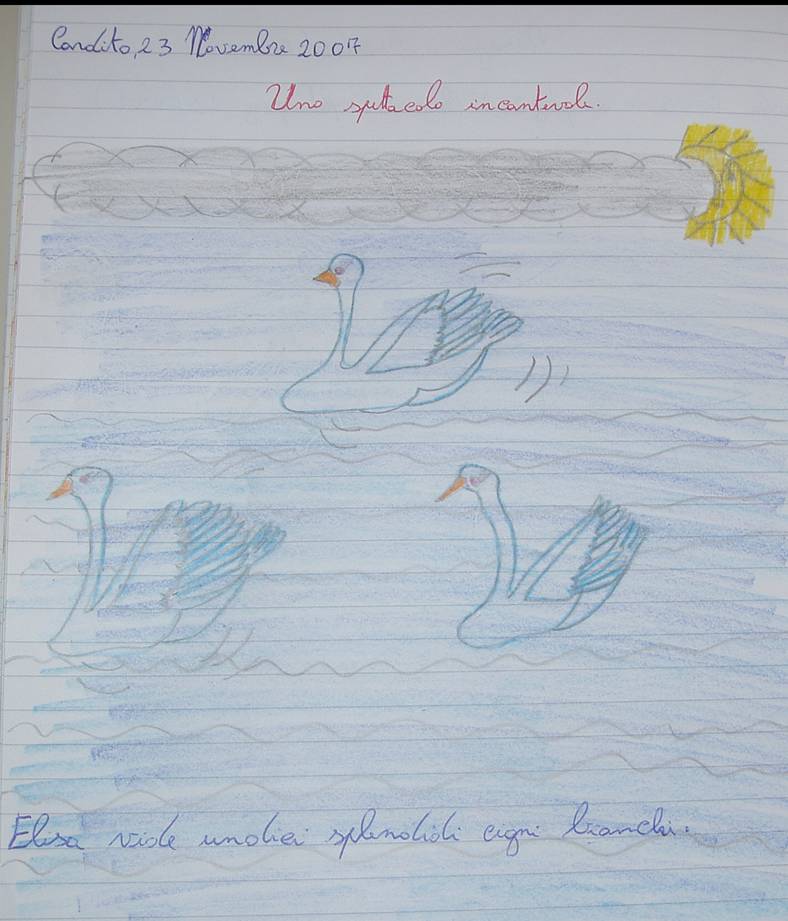 Candito, 23 Novembre 2007
Uno spettacolo incantevole.
Elisa vide undici splendidi cigni bianchi.